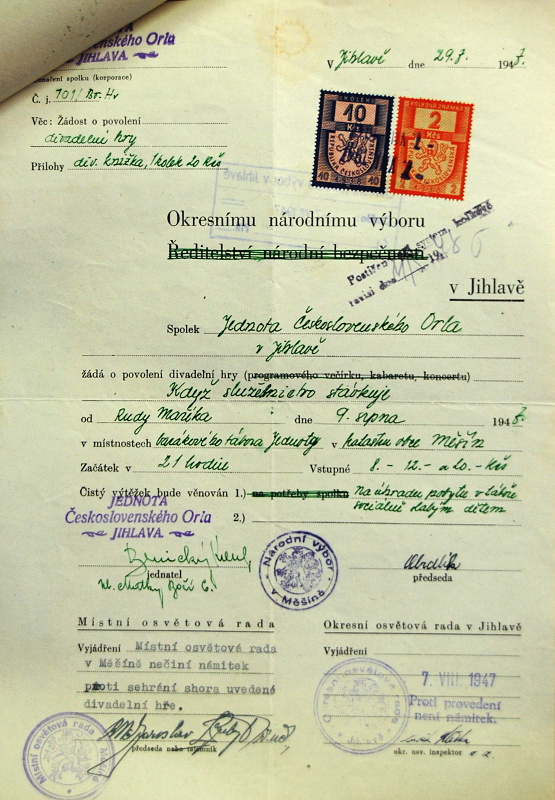 Československého Orla
JIHLAVA.
označení spolku (korporace)
V Jihlavě dne 29.7. 1947.
Č. j. 701/Br. Hr
Věc: Žádost o povolení
divadelní hry
Přílohy div. knížka, 1 kolek 20 Kčs
KOLEK
10
Kčs
REPUBLIKA ČESKOSLOVENSKÁ
10 1938 10
KOLKOVÁ ZNÁMKA
2
Kčs
2 2
Okresnímu národnímu výboru
Ředitelství národní bezpečnosti
v Jihlavě
Spolek Jednota Československého Orla
v Jihlavě
žádá o povolení divadelní hry (programového večírku, kabaretu, koncertu)
Když služebnictvo stávkuje
od Rudy Maříka dne 9. srpna 1947.
v místnostech barákového tábora Jednoty v katastru obce Měšín
Začátek v 21 hodin Vstupné 8.- 12.- a 20.- Kčs
Čistý výtěžek bude věnován 1.) na potřeby spolku na úhradu pobytu v táboře
sociálně slabým dětem
2.)
JEDNOTA
Československého Orla
JIHLAVA.
jednatel
Národní výbor
v Měšíně
předseda
Místní osvětová rada
Vyjádření Místní osvětová rada
v Měšíně nečiní námitek
proti sehrání shora uvedené
divadelní hře.
předseda nebo tajemník
Místní osvětová rada
Okresní osvětová rada v Jihlavě
Vyjádření
7. VIII. 1947
Proti provedení
není námitek.
Okresní osvětová rada
okr. osv. inspektor